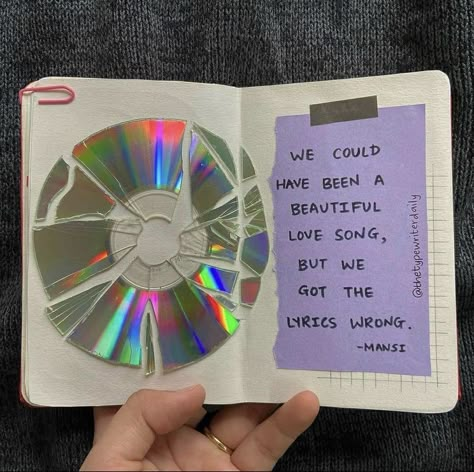 WE COULD
HAVE BEEN A
BEAUTIFUL
LOVE SONG,
BUT WE
GOT THE
LYRICS WRONG.
-MANSI
@thetypewriterdaily